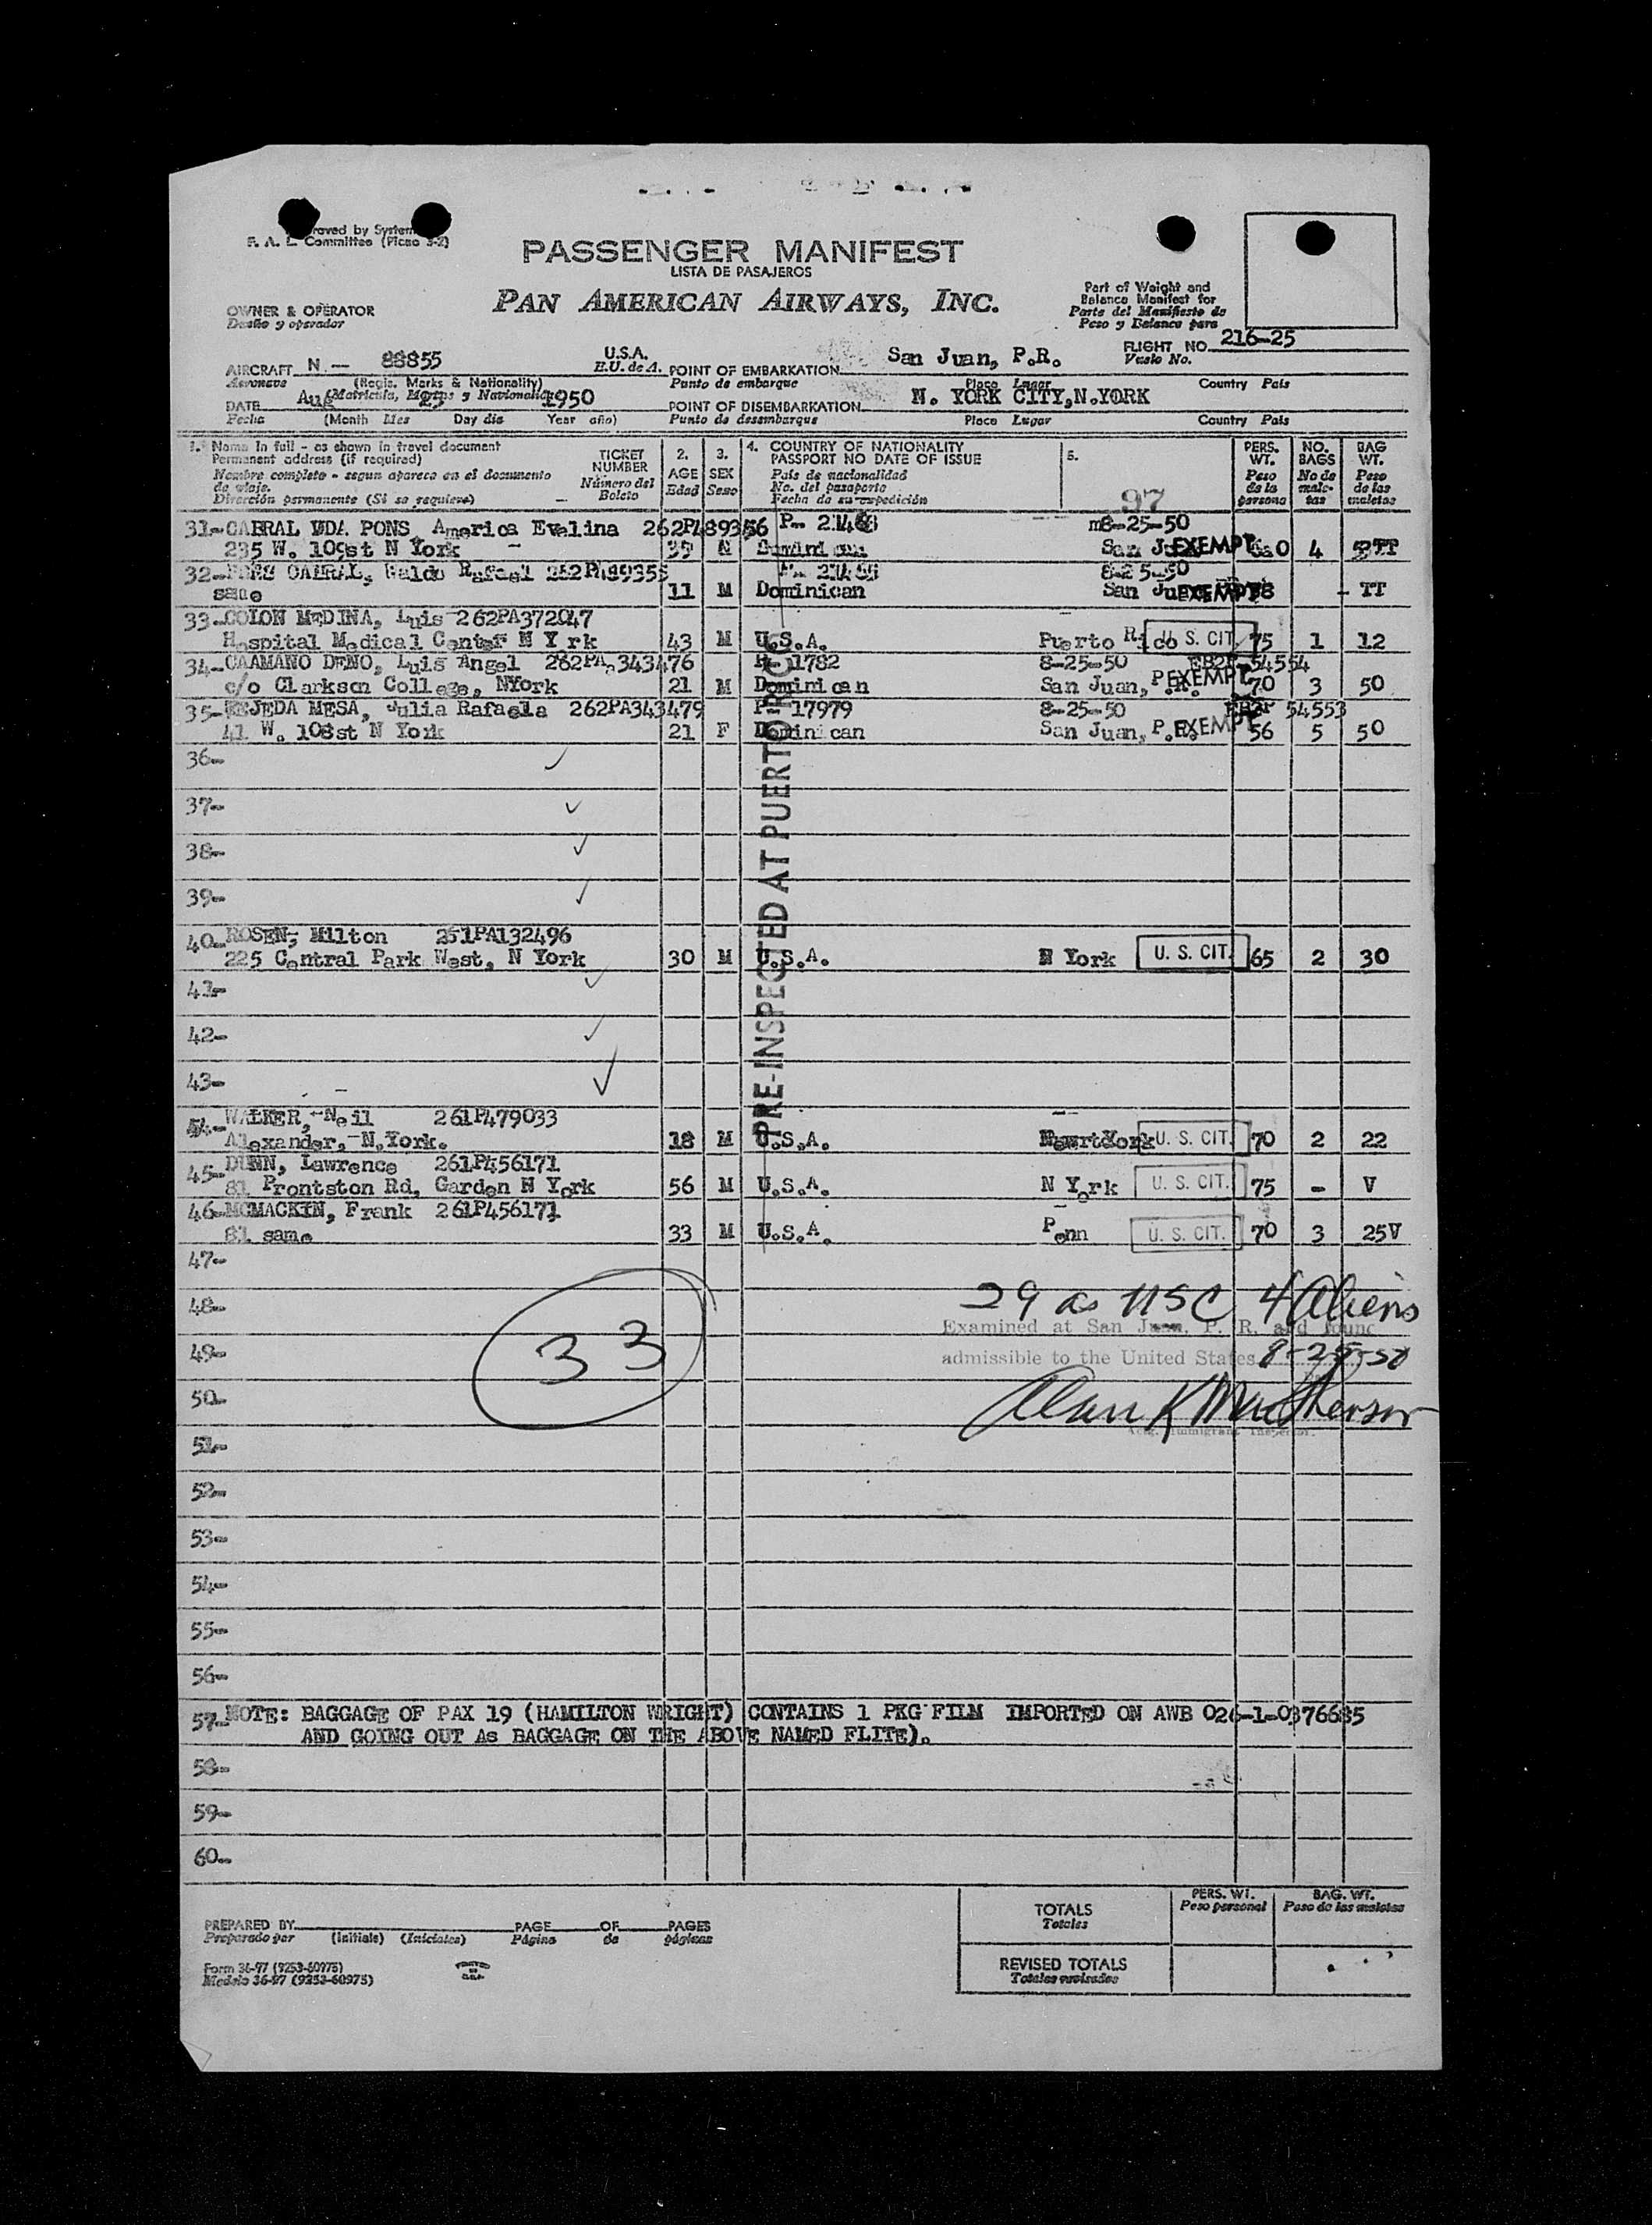 roved by System
F. A. L. Committee (Picao 3-2)
PASSENGER MANIFEST
LISTA DE PASAJEROS
PAN AMERICAN AIRWAYS, INC.
Part of Weight and
Balance Manifest for
Parte del Manifiesto de
Peso y Balance para
OWNER & OPERATOR
Dueño y operador
FLIGHT NO. 216-25
Vuelo No.
AIRCRAFT N.— 88855 U.S.A. POINT OF EMBARKATION San Juan, P.R.
Aeronave (Regis. Marks & Nationality) E.U. de A. Punto de embarque Place Lugar Country País
DATE Aug 1950 POINT OF DISEMBARKATION N. YORK CITY,N.YORK
Fecha (Month Mes Day día Year año) Punto de desembarque Place Lugar Country País
1. Name in full - as shown in travel document
Permanent address (if required)
Nombre completo - segun aparece en el documento
de viaje.
Dirección permanente (Si se requiere)
TICKET
NUMBER
Número del
Boleto
2.
AGE
Edad
3.
SEX
Sexo
4. COUNTRY OF NATIONALITY
PASSPORT NO DATE OF ISSUE
País de nacionalidad
No. del pasaporte
Fecha de su expedición
5.
97
PERS.
WT.
Peso
de la
persona
NO.
BAGS
No de
male-
tas
BAG
WT.
Peso
de las
maletas
31-CABRAL VDA PONS, America Evelina 262P489356 P- m8-25-50
235 W. 109st N York 39 San EXEMPT 4 TT
32- CABRAL, Waldo Rafael 262P489355 8-25-50
same 11 M Dominican San Juan EXEMPT - TT
33-COLON MEDINA, Luis 262PA372047
Hospital Medical Center N Y rk 43 M U.S.A. Puerto Rico U. S. CIT. 75 1 12
34-CAAMANO DENO, Luis Angel 262PA343476 P- 1782 8-25-50 54554
c/o Clarkson College, NYork 21 M Dominican San Juan, P EXEMPT 70 3 50
35-TEJEDA MESA, Julia Rafaela 262PA343479 P- 17979 8-25-50 54553
41 W. 108st N York 21 F Dominican San Juan, P.R. EXEMPT 56 5 50
36-
37-
38-
39-
40-ROSEN, Milton 251PA132496
225 Central Park West, N York 30 M U.S.A. N York U. S. CIT. 65 2 30
41-
42-
43-
44-WALKER, Neil 261P479033
Alexander, N.York. 18 M U.S.A. U. S. CIT. 70 2 22
45-DUNN, Lawrence 261P456171
81 Prontston Rd, Garden N York 56 M U.S.A. N York U. S. CIT. 75 - V
46-MCMACKIN, Frank 261P456171
81 same 33 M U.S.A. Penn U. S. CIT. 70 3 25V
PRE-INSPECTED AT PUERTO RICO
47-
48- 29 as USC 4 Aliens
33
Examined at San Juan, P. R. and found
49- admissible to the United States 8-25-50
50- Alan K MacPherson
Actg. Immigrant Inspector.
51-
52-
53-
54-
55-
56-
57-NOTE: BAGGAGE OF PAX 19 (HAMILTON WRIGHT) CONTAINS 1 PKG FILM IMPORTED ON AWB 026-1-0376685
AND GOING OUT As BAGGAGE ON THE ABOVE NAMED FLITE).
58-
59-
60-
TOTALS
Totales
PERS. WT.
Peso personal
BAG. WT.
Peso de las maletas
REVISED TOTALS
Totales revisados
PREPARED BY PAGE OF PAGES
Preparado por (Initials) (Iniciales) Página de páginas
Form 36-97 (9253-60975)
Modelo 36-97 (9253-60975)
PRINTED
IN
U.S.A.